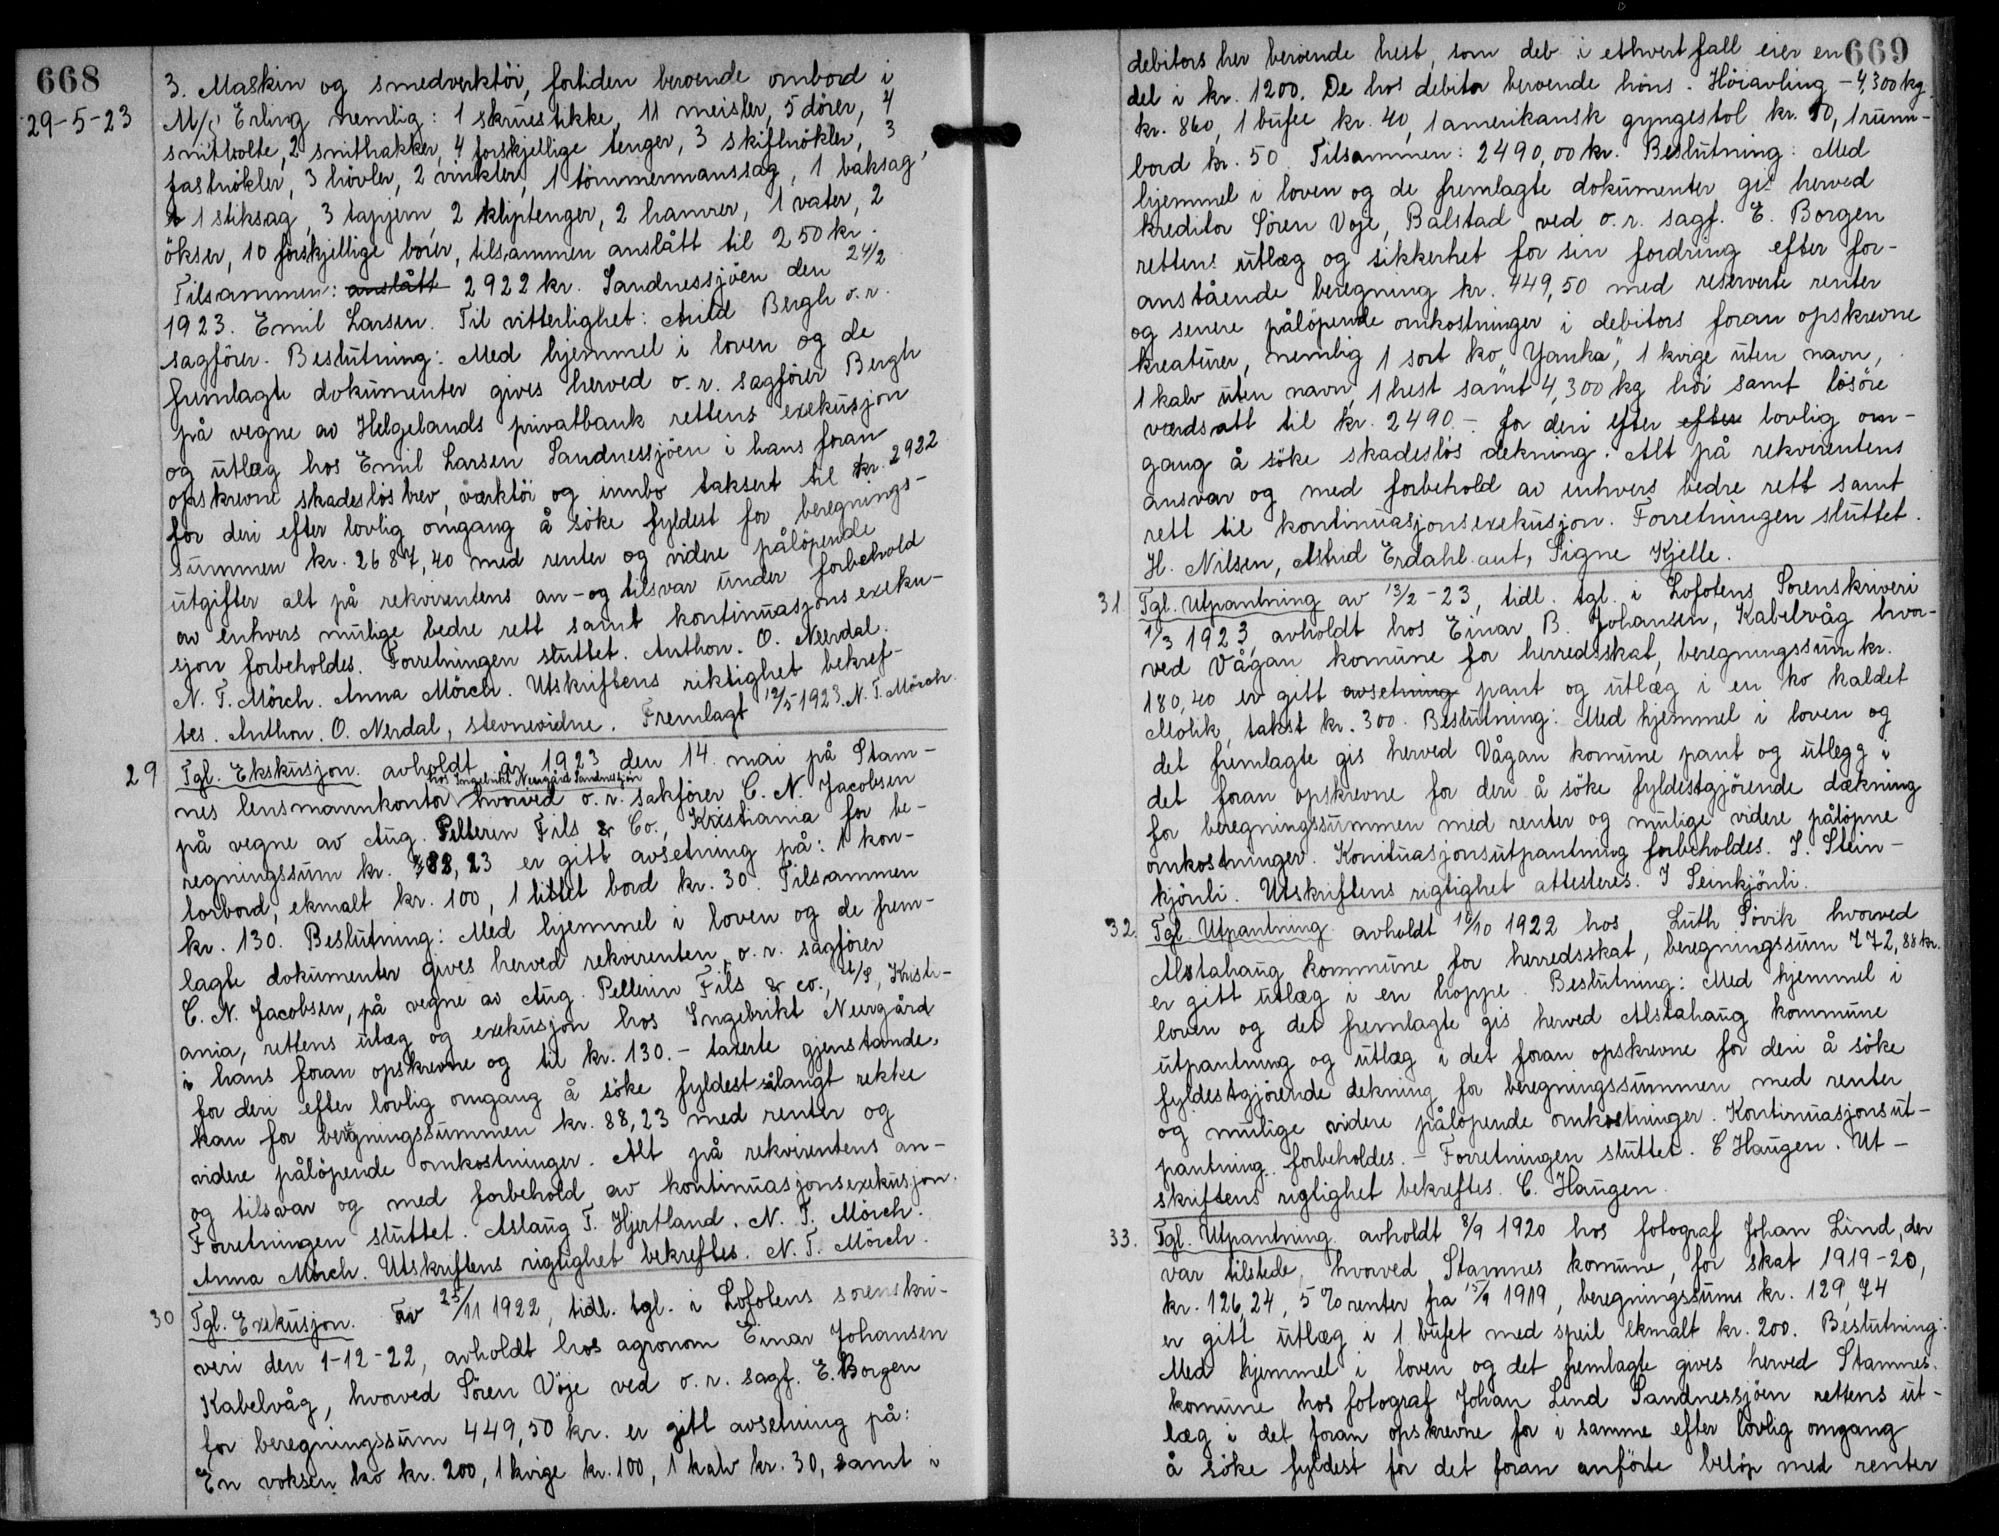 668
29-5-23
3. Maskin og smedverktöi, fortiden beroende ombord i
M/S Erling nemlig: 1 skruestikke, 11 meisler, 5 dörer, 4
snittbolte, 2 snittbakker, 4 forskjellige tenger, 3 skiftnökler, 3
fastnökler, 3 hövler, 2 vinkler, 1 tömmermannssag, 1 baksag,
1 stiksag, 3 tapjern, 2 kliptenger, 2 hamrer, 1 vater, 2
ökser, 10 forskjellige borer, tilsammen anslått til 250 kr.
Tilsammen: anslått 2922 kr. Sandnessjöen den 24/2
1923. Emil Larsen. Til vitterlighet: Bergh o.r.
sagförer. Beslutning: Med hjemmel i loven og de
fremlagte dokumenter gives herved o.r. sagförer Bergh
på vegne av Helgelands privatbank rettens exekusjon
og utlæg hos Emil Larsen Sandnessjöen i hans foran
opskrevne skadeslösbrev, værktöi og innbo taksert til kr. 2922
for deri efter lovlig omgang å söke fyldest for beregnings-
summen kr. 2687,40 med renter og videre pålöpende
utgifter alt på rekvirentens an- og tilsvar under forbehold
av enhvers mulige bedre rett samt kontinuasjonsexeku-
sjon forbeholdes. Forretningen sluttet. Anthon. O. Nerdal.
N. T. Mörch. Anna Mörch. Utskriftens riktighet bekref-
tes. Anthon. O. Nerdal, stevnevidne. Fremlagt 12/5-1923. N. T. Mörch.
29 Tgl. Ekskusjon. avholdt år 1923 den 14. mai på Stam-
hos Ingebrikt Neergård Sandnessjöen
nes lensmannkontor hvorved o.r. sakförer C. N. Jacobsen
på vegne av Aug. Pellerin Fils & Co., Kristiania for be-
regningssum kr. 88,23 er gitt avsetning på: 1 kon-
torbord, ekmalt kr. 100, 1 littet bord kr. 30. Tilsammen
kr. 130. Beslutning: Med hjemmel i loven og de frem-
lagte dokumenter gives herved rekvirenten, o.r. sagförer
C. N. Jacobsen, på vegne av Aug. Pellerin Fils & co., A/S, Kristi-
ania, rettens utlæg og exekusjon hos Ingebrikt Neergård
i hans foran opskrevne og til kr. 130.- taxerte gjenstande,
for deri efter lovlig omgang å söke fyldest sålangt rekke
kan for beregningssummen kr. 88,23 med renter og
videre pålöpende omkostninger. Alt på rekvirentens an-
og tilsvar og med forbehold av kontinuasjonsexekusjon.
Forretningen sluttet. Aslaug T. Hjertland. N. T. Mörch.
Anna Mörch. Utskriftens rigtighet bekreftes. N. T. Mörch.
30 Tgl. Exekusjon. av 25/11 1922, tidl. tgl. i Lofotens sorenskri-
veri den 1-12-22, avholdt hos agronom Einar Johansen
Kabelvåg, hvorved Sören Voje ved o.r. sagf. E. Borgen
for beregningssum 449,50 kr. er gitt avsetning på:
En voksen ko kr. 200, 1 kvige kr. 100, 1 kalv kr. 30, samt i
669
debitors her beroende hest, som deb. i ethvert fall eier en
del i kr. 1200. De hos debitor beroende höns. Höiavling - 4,300 kg.
kr. 860, 1 bufee kr. 40, 1 amerikansk gyngestol kr. 10, 1 rund-
bord kr. 50 Tilsammen: 2490,00 kr. Beslutning: Med
hjemmel i loven og de fremlagte dokumenter gis herved
kreditor Sören Voje, Balstad ved o.r. sagf. E. Borgen
rettens utlæg og sikkerhet for sin fordring efter for-
anstående beregning kr. 449,50 med reserverte renter
og senere pålöpende omkostninger i debitors foran opskrevne
kreaturer, nemlig 1 sort ko "Yanka", 1 kvige uten navn,
1 kalv uten navn, 1 hest samt 4,300 kg höi samt lösöre
værdsatt til kr. 2490.- for deri efter efter lovlig om-
gang å söke skadeslös dekning. Alt på rekvirentens
ansvar og med forbehold av enhvers bedre rett samt
rett til kontinuasjonsexekusjon. Forretningen sluttet.
H. Nilsen, Astrid Erdahl. aut, Signe Kjelle.
31 Tgl. Utpantning av 13/2-23, tidl. tgl. i Lofotens Sorenskriveri
1/3 1923, avholdt hos Einar B. Johansen, Kabelvåg hvor-
ved Vågan komune for herredsskat, beregningssum kr.
180,40 er gitt avsetning pant og utlæg i en ko kaldet
Molik, takst kr. 300. Beslutning: Med hjemmel i loven og
det fremlagte gis herved Vågan komune pant og utlegg i
det foran opskrevne for deri å söke fyldestgjörende dækning
for beregningssummen med renter og mulige videre pålöpne
omkostninger. Konituasjonsutpantning forbeholdes. I. Stein-
kjönli. Utskriftens rigtighet attesteres. I Seinkjönli.
32. Tgl Utpantning. avholdt 16/10 1922 hos Luth Sövik hvorved
Alstahaug kommune for herredsskat, beregningssum 772,88 kr.
er gitt utlæg i en hoppe. Beslutning: Med hjemmel i
loven og det fremlagte gis herved Alstahaug kommune
utpantning og utlæg i det foran opskrevne for deri å söke
fyldestgjörende dekning for beregningssummen med renter
og mulige videre pålöpende omkostninger. Kontinuasjonsut-
pantning forbeholdes. - Forretningen sluttet. C Haugen. Ut-
skriftens riglighet bekreftes. C. Haugen.
33. Tgl. Utpantning. avholdt 8/9 1920 hos fotograf Johan Lind, der
var tilstede, hvorved Stamnes komune, for skat 1919-20,
kr. 126,24, 5% renter fra 15/9 1919, beregningssum kr. 129,74
er gitt utlæg i 1 bufet med speil ekmalt kr. 200. Beslutning:
Med hjemmel i loven og det fremlagte gives herved Stamnes.
komune hos fotograf Johan Lind Sandnessjöen rettens ut-
læg i det foran opskrevne for i samme efter lovlig omgang
å söke fyldest for det foran anförte belöp med renter